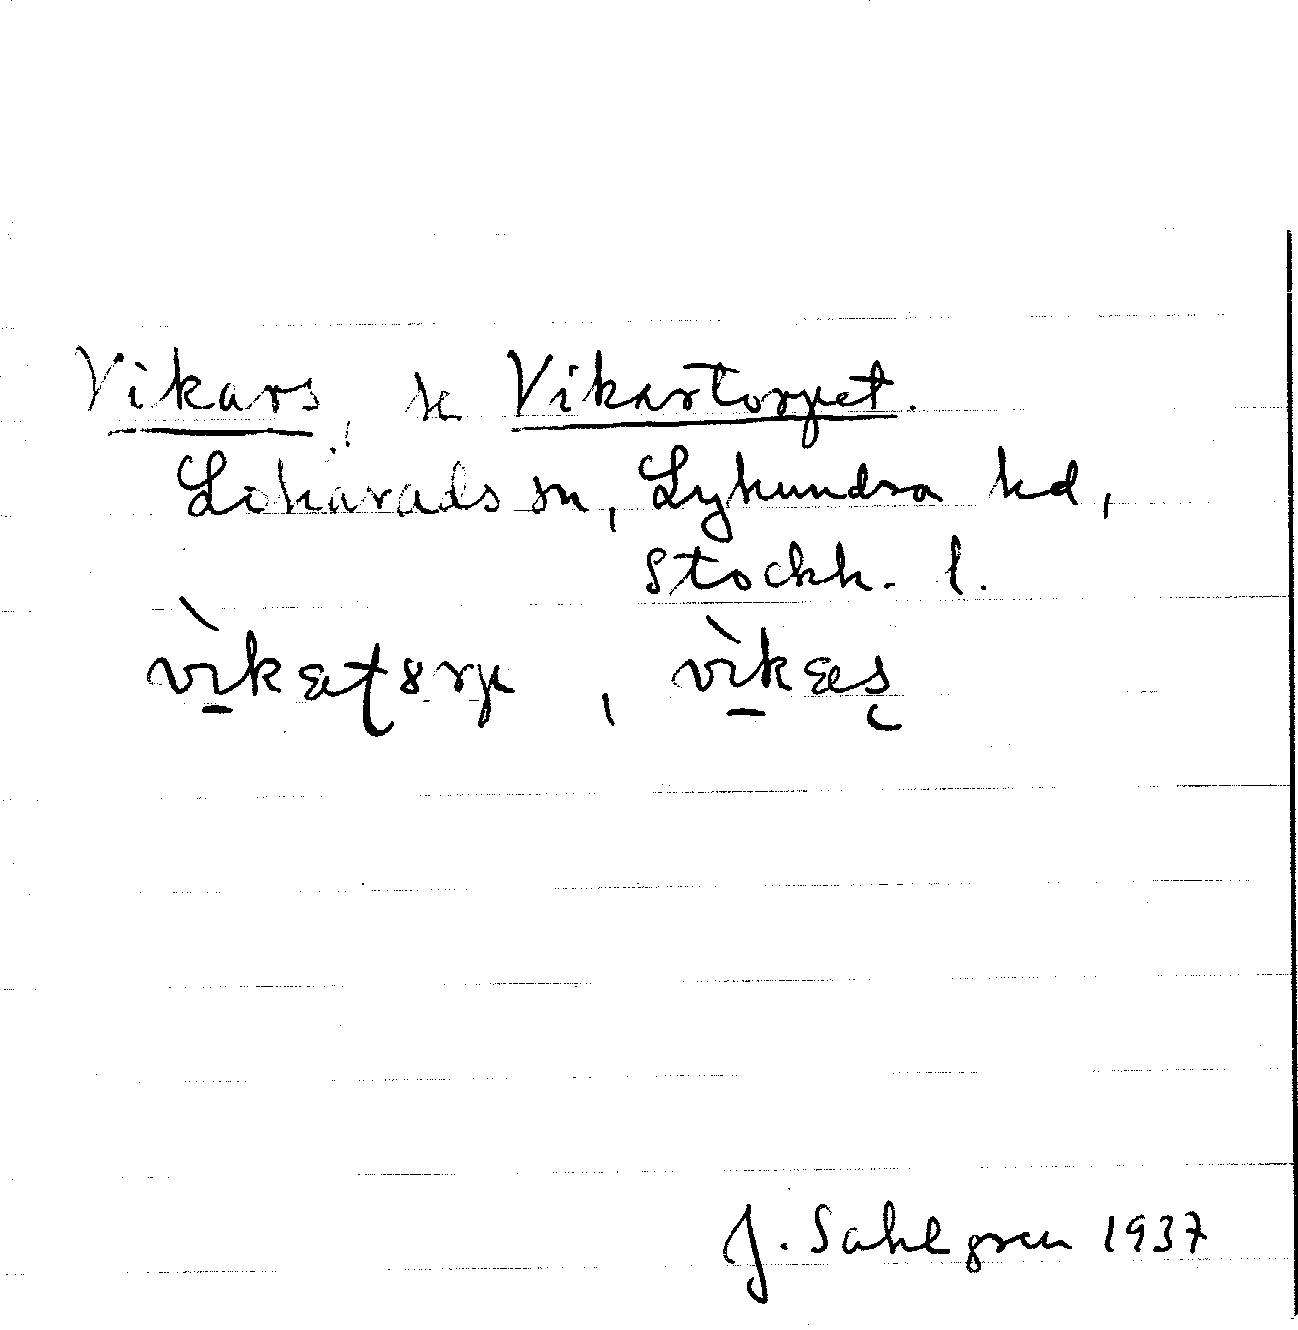 Vikars, se Vikartorpet.
Lohärads sn, Lyhundra hd,
Stockh. l.
vìkæʈɵrp, vìkæʂ
J. Sahlgren 1937